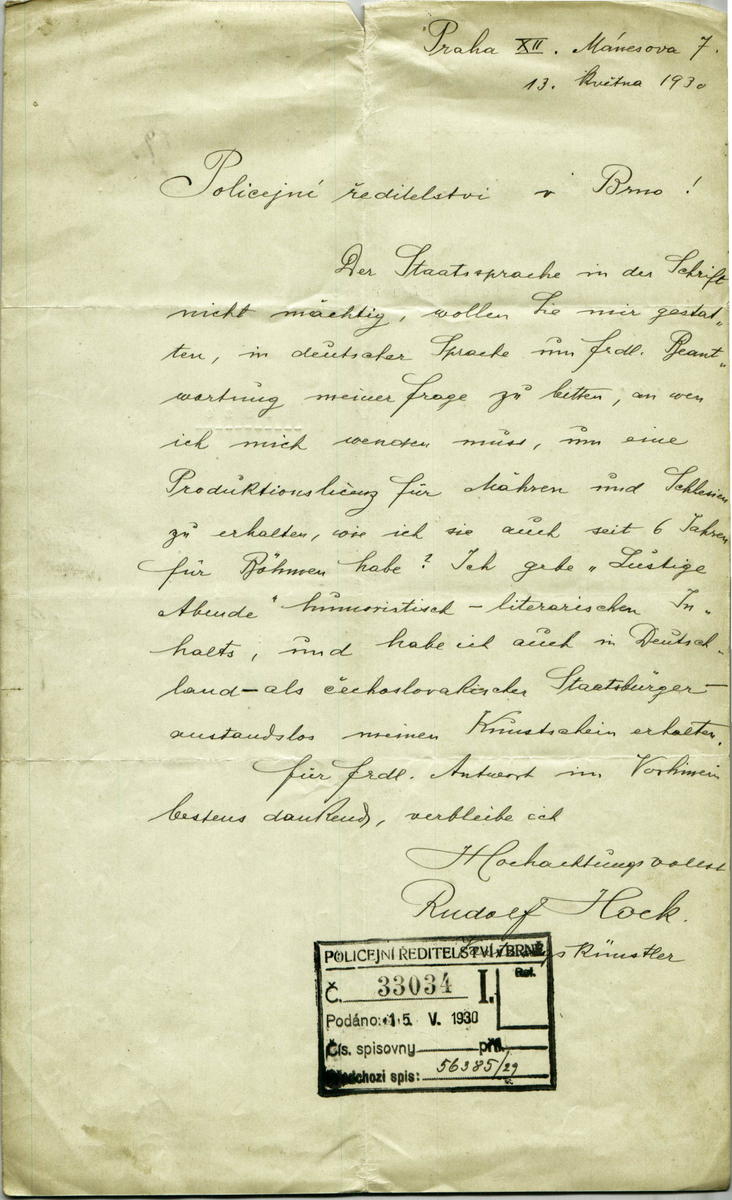 Praha XII. Mánesova 7.
13. května 1930
Policejní ředitelství v Brno!
Der Staatssprache in der Schrift
nicht mächtig, wollen Sie mir gestat„
ten, in deutscher Sprache um frdl. Beant„
wortung meiner Frage zu bitten, an wen
ich mich wenden muss, um eine
Produktionslicenz für Mähren und Schlesien
zu erhalten, wie ich sie auch seit 6 Jahren
für Böhmen habe? Ich gebe „Lustige
Abende“ humoristisch – literarischen In„
halts, und habe ich auch in Deutsch„
land – als čechoslovakischer Staatsbürger –
anstandslos meinen Kunstschein erhalten.
Für frdl. Antwort im Vorhinein
bestens dankend, verbleibe ich
Hochachtungsvollst
Rudolf Hock.
Künstler
POLICEJNÍ ŘEDITELSTVÍ V BRNĚ
Č. 33034 I. Ref.
Podáno: 15. V. 1930
Čís. spisovny příl.
Předchozí spis: 56385/29